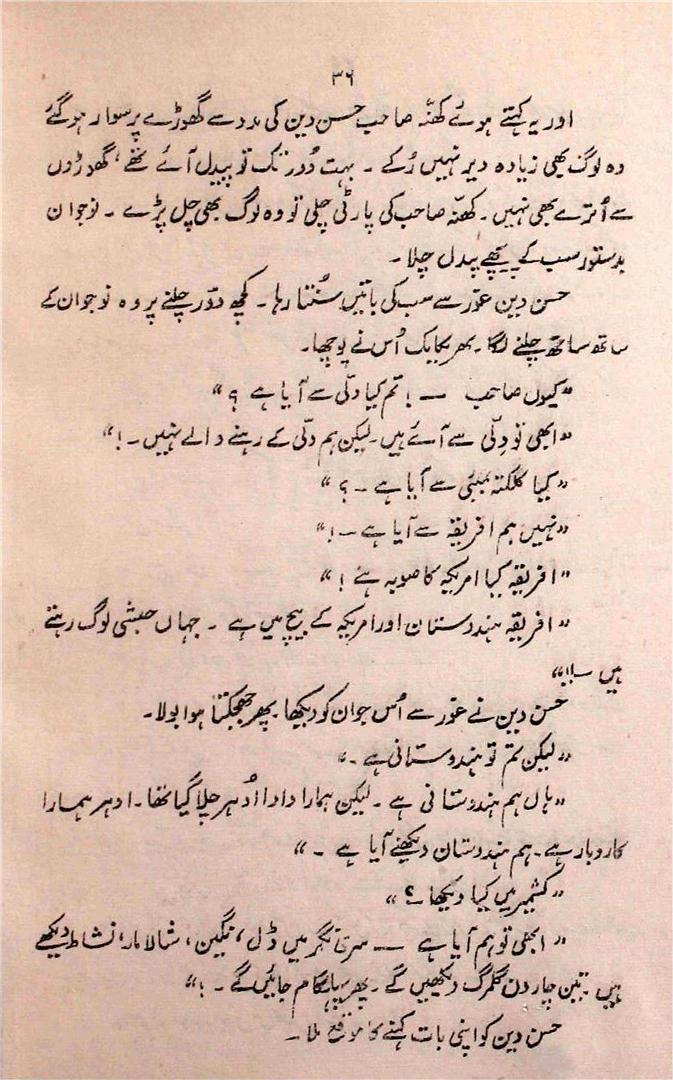 ۳۶
اور یہ کہتے ہوئے کھنّہ صاحب حسن دین کی مدد سے گھوڑے پر سوار ہوگئے
وہ لوگ بھی زیادہ دیر نہیں رُکے ۔ بہت دُور تک تو پیدل آئے تھے ، گھوڑوں
سے اُترے بھی نہیں ۔ کھنّہ صاحب کی پارٹی چلی تو وہ لوگ بھی چل پڑے ۔ نوجوان
بدستور سب کے پیچھے پیدل چلا ۔
حسن دین غور سے سب کی باتیں سُنتا رہا ۔ کچھ دُور چلنے پر وہ نوجوان کے
ساتھ ساتھ چلنے لگا ۔ پھر یکایک اُس نے پوچھا ۔
” کیوں صاحب ــــ ! تم کیا دلّی سے آیا ہے ؟ “
” ابھی تو دلّی سے آئے ہیں ۔ لیکن ہم دلّی کے رہنے والے نہیں ۔ ! “
” کیا کلکتہ بمبئی سے آیا ہے ۔ ؟ “
” نہیں ہم افریقہ سے آیا ہے ۔ ! “
” افریقہ کیا امریکہ کا صوبہ ہے ! “
” افریقہ ہندوستان اور امریکہ کے بیچ میں ہے ۔ جہاں حبشی لوگ رہتے
ہیں ۔ !! “
حسن دین نے غور سے اُس جوان کو دیکھا ۔ پھر جھجکتا ہوا بولا ۔
” لیکن تم تو ہندوستانی ہے ۔ “
” ہاں ہم ہندوستانی ہے ۔ لیکن ہمارا دادا اُدھر چلا گیا تھا ۔ ادھر ہمارا
کاروبار ہے ۔ ہم ہندوستان دیکھنے آیا ہے ۔ “
” کشمیر میں کیا دیکھا ۔ ؟ “
” ابھی تو ہم آیا ہے ــــ سری نگر میں ڈل ، نگین ، شالامار ، نشاط دیکھے
ہیں ۔ تین چار دن گلمرگ دیکھیں گے ۔ پھر پہلگام جائیں گے ۔ ! “
حسن دین کو اپنی بات کہنے کا موقع ملا ۔